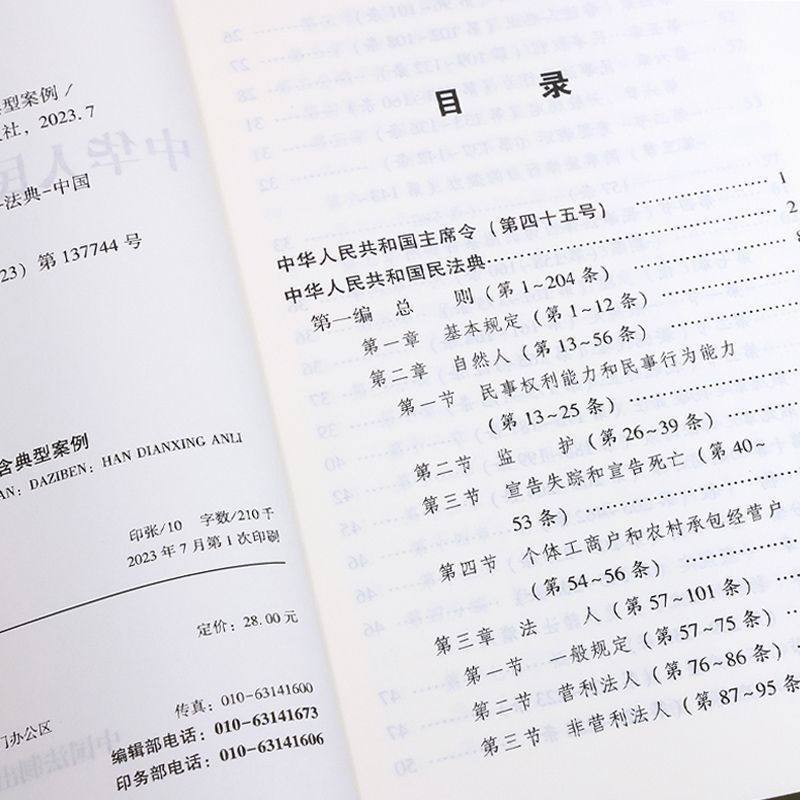 典型案例/
社，2023.7
法典-中国
23）第137744号
含典型案例
AN: DAZIBEN: HAN DIANXING ANLI
印张/10 字数/210千
2023年7月第1次印刷
定价：28.00元
传真：010-63141600
门办公区
编辑部电话：010-63141673
印务部电话：010-63141606
目 录
中华人民共和国主席令（第四十五号）……………… 1
中华人民共和国民法典……………… 2
第一编 总 则（第1~204条）………………
第一章 基本规定（第1~12条）………………
第二章 自然人（第13~56条）………………
第一节 民事权利能力和民事行为能力
（第13~25条）………………
第二节 监 护（第26~39条）………………
第三节 宣告失踪和宣告死亡（第40~
53条）………………
第四节 个体工商户和农村承包经营户
（第54~56条）………………
第三章 法 人（第57~101条）………………
第一节 一般规定（第57~75条）………………
第二节 营利法人（第76~86条）………………
第三节 非营利法人（第87~95条